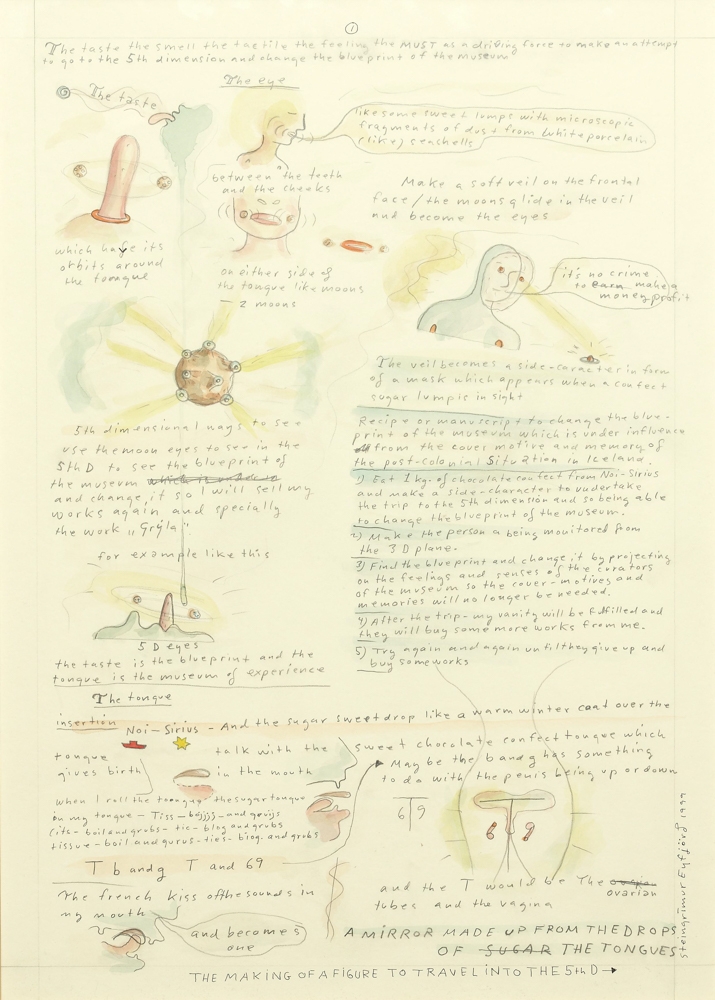 1
The taste the smell the tactile the feeling the MUST as a driving force to make an attempt
to go to the 5th dimension and change the blueprint of the museum
The eye
The taste
like some sweet lumps with microscopic
fragments of dust from white porcelain
(like) seashells
between the teeth
and the cheeks
Make a soft veil on the frontal
face/the moons glide in the veil
and become the eyes
which have its
orbits around
the tongue
on either side of
the tongue like moons
— 2 moons
it's no crime
to earn make a
money profit
The veil becomes a side-caracter in form
of a mask which appears when a confect
sugar lump is in sight
5th dimensional ways to see
use the moon eyes to see in the
5th D to see the blueprint of
the museum which is under in
and change it so I will sell my
works again and specially
the work "Grýla"
for example like this
5 D eyes
the taste is the blueprint and the
tongue is the museum of experience
Recipe or manuscript to change the blue-
print of the museum which is under influence
from the cover motive and memory of
the post-colonial Situation in Iceland.
1) Eat 1 kg. of chocolate confect from Noi-Sirius
and make a side-character to undertake
the trip to the 5th dimension and so being able
to change the blueprint of the museum.
2) Make the person a being monitored from
the 3 D plane.
3) Find the blueprint and change it by projecting
on the feelings and senses of the curators
of the museum so the cover-motives and
memories will no longer be needed.
4) After the trip-my vanity will be fulfilled and
they will buy some more works from me.
5) Try again and again until they give up and
buy some works
The tongue
insertion Noi-Sirius - And the sugar sweet drop like a warm winter coat over the
tongue talk with the sweet chocolate confect tongue which
gives birth in the mouth
May be the b and g has something
to do with the penis being up or down
when I roll the tongue the sugar tongue
on my tongue - Tiss - bojjj- and govijs
T b and g T and 69
6 T 9
6 9
The french kiss of the sounds in
my mouth
and becomes
one
and the T would be The
ovarian
tubes and the vagina
A MIRROR MADE UP FROM THE DROPS
OF SUGAR THE TONGUES
THE MAKING OF A FIGURE TO TRAVEL INTO THE 5th D →